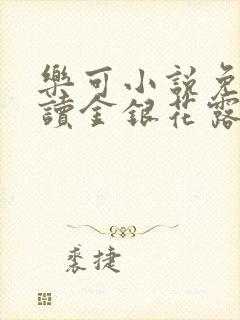 樂可小說免
讀金銀花露
裘捷